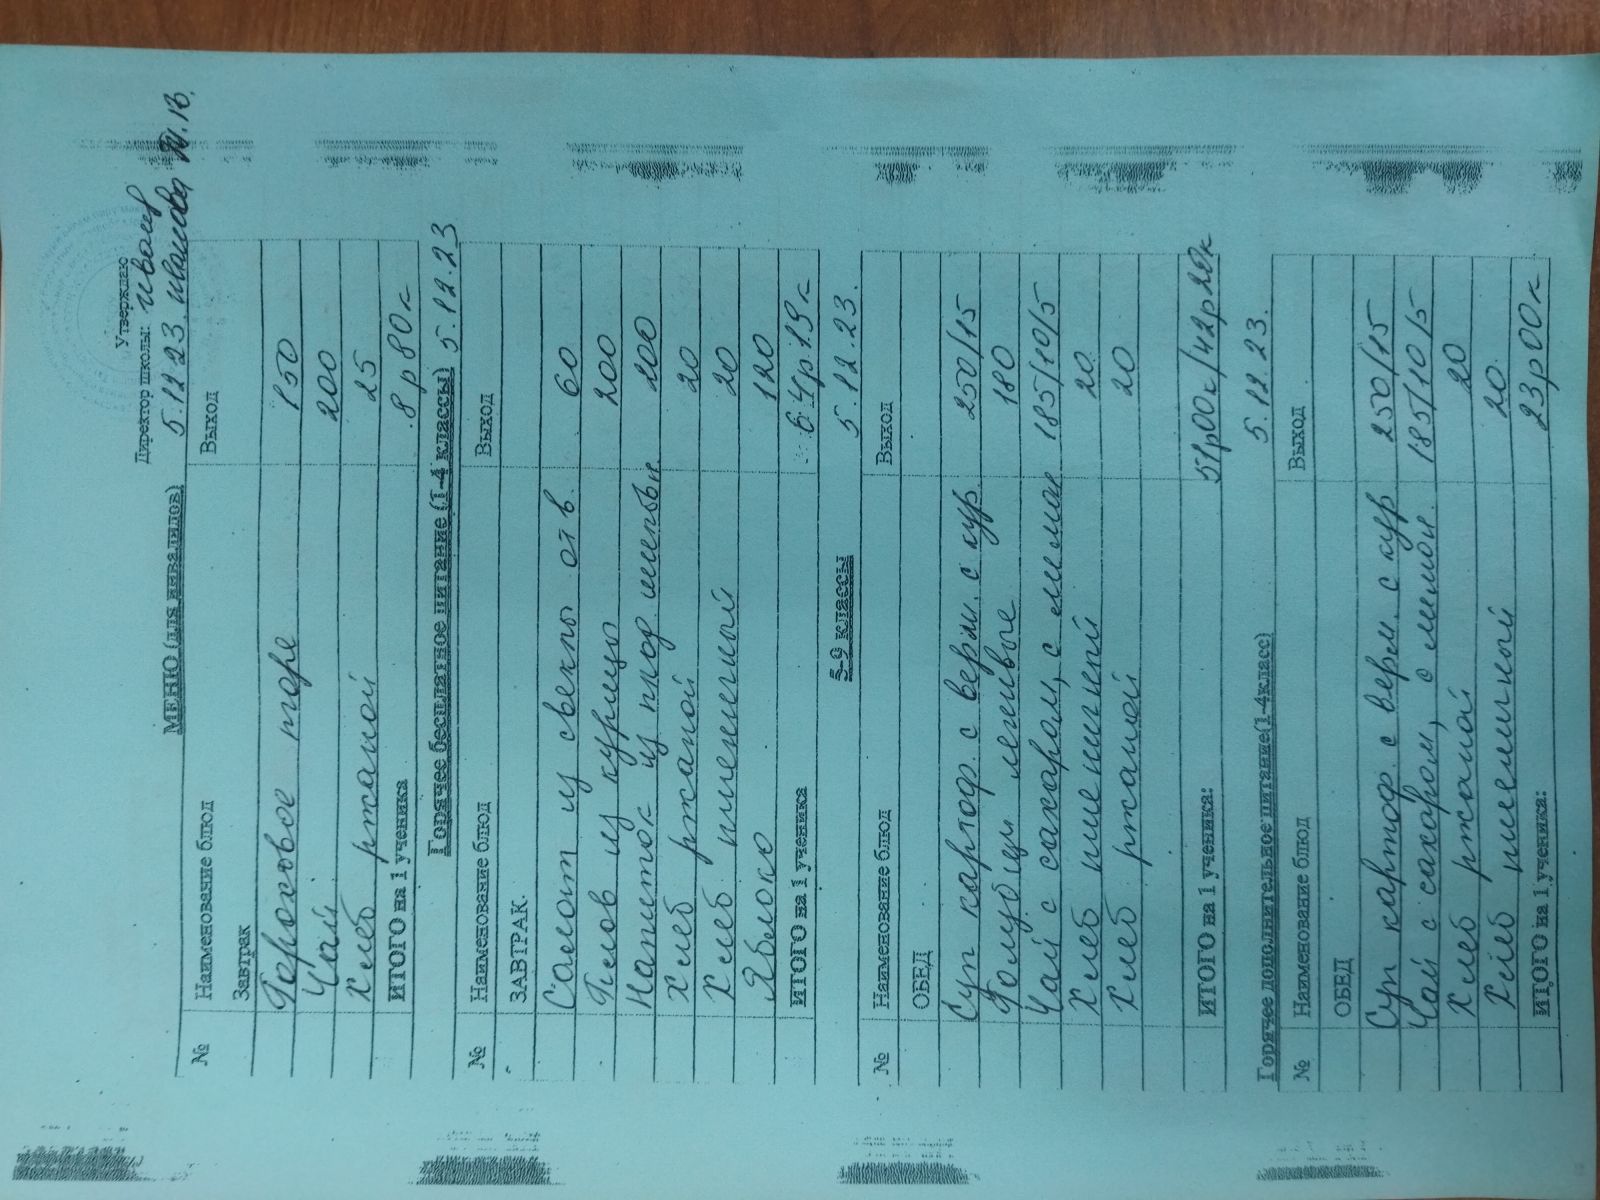 Утверждаю
Директор школы:
5.12.23. Иванова Т.В.
МЕНЮ (для инвалидов)
№ Наименование блюд Выход
Завтрак
Гороховое пюре 150
Чай 200
Хлеб ржаной 25
ИТОГО на 1 ученика 8р80к
Горячее бесплатное питание (1-4 классы) 5.12.23
№ Наименование блюд Выход
ЗАВТРАК.
Салат из свеклы отв. 60
Плов из курицы 200
Напиток из плод. шиповн. 200
Хлеб ржаной 20
Хлеб пшеничный 20
Яблоко 120
ИТОГО на 1 ученика 64р19к
5-9 классы 5.12.23.
№ Наименование блюд Выход
ОБЕД
Суп картоф. с верм. с кур. 250/15
Голубцы ленивые 180
Чай с сахаром, с лимон 185/10/5
Хлеб пшеничный 20
Хлеб ржаной 20
ИТОГО на 1 ученика: 51р00к/42р20к
5.12.23.
Горячее дополнительное питание(1-4класс)
№ Наименование блюд Выход
ОБЕД
Суп картоф. с верм. с кур 250/15
Чай с сахаром, с лимон. 185/10/5
Хлеб ржаной 20
Хлеб пшеничный 20
ИТОГО на 1 ученика: 23р00к